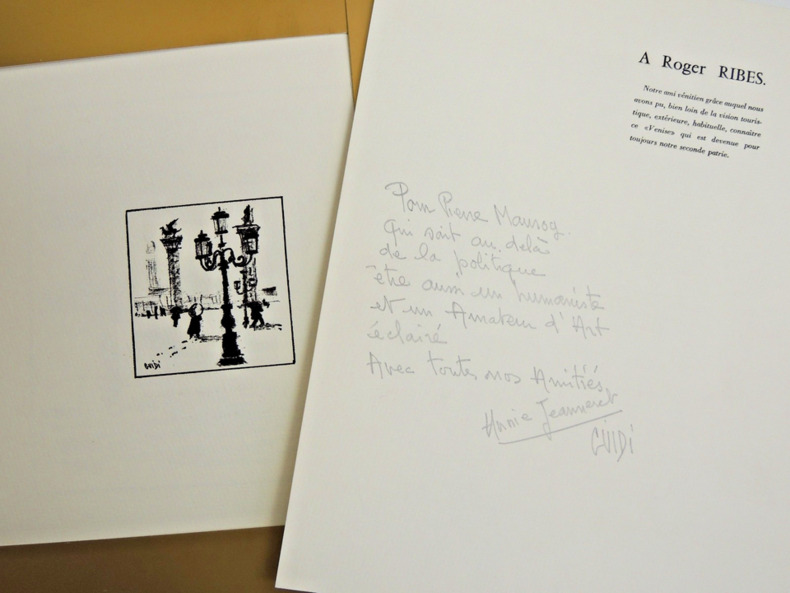 GUIDI
A Roger RIBES.
Notre ami vénitien grâce auquel nous
avons pu, bien loin de la vision touris-
tique, extérieure, habituelle, connaître
ce «Venise» qui est devenue pour
toujours notre seconde patrie.
Pour Pierre Mauroy.
qui sait au delà
de la politique
être aussi un humaniste
et un Amateur d'Art
éclairé
Avec toutes nos Amitiés,
Annie Jeanneret
GUIDI